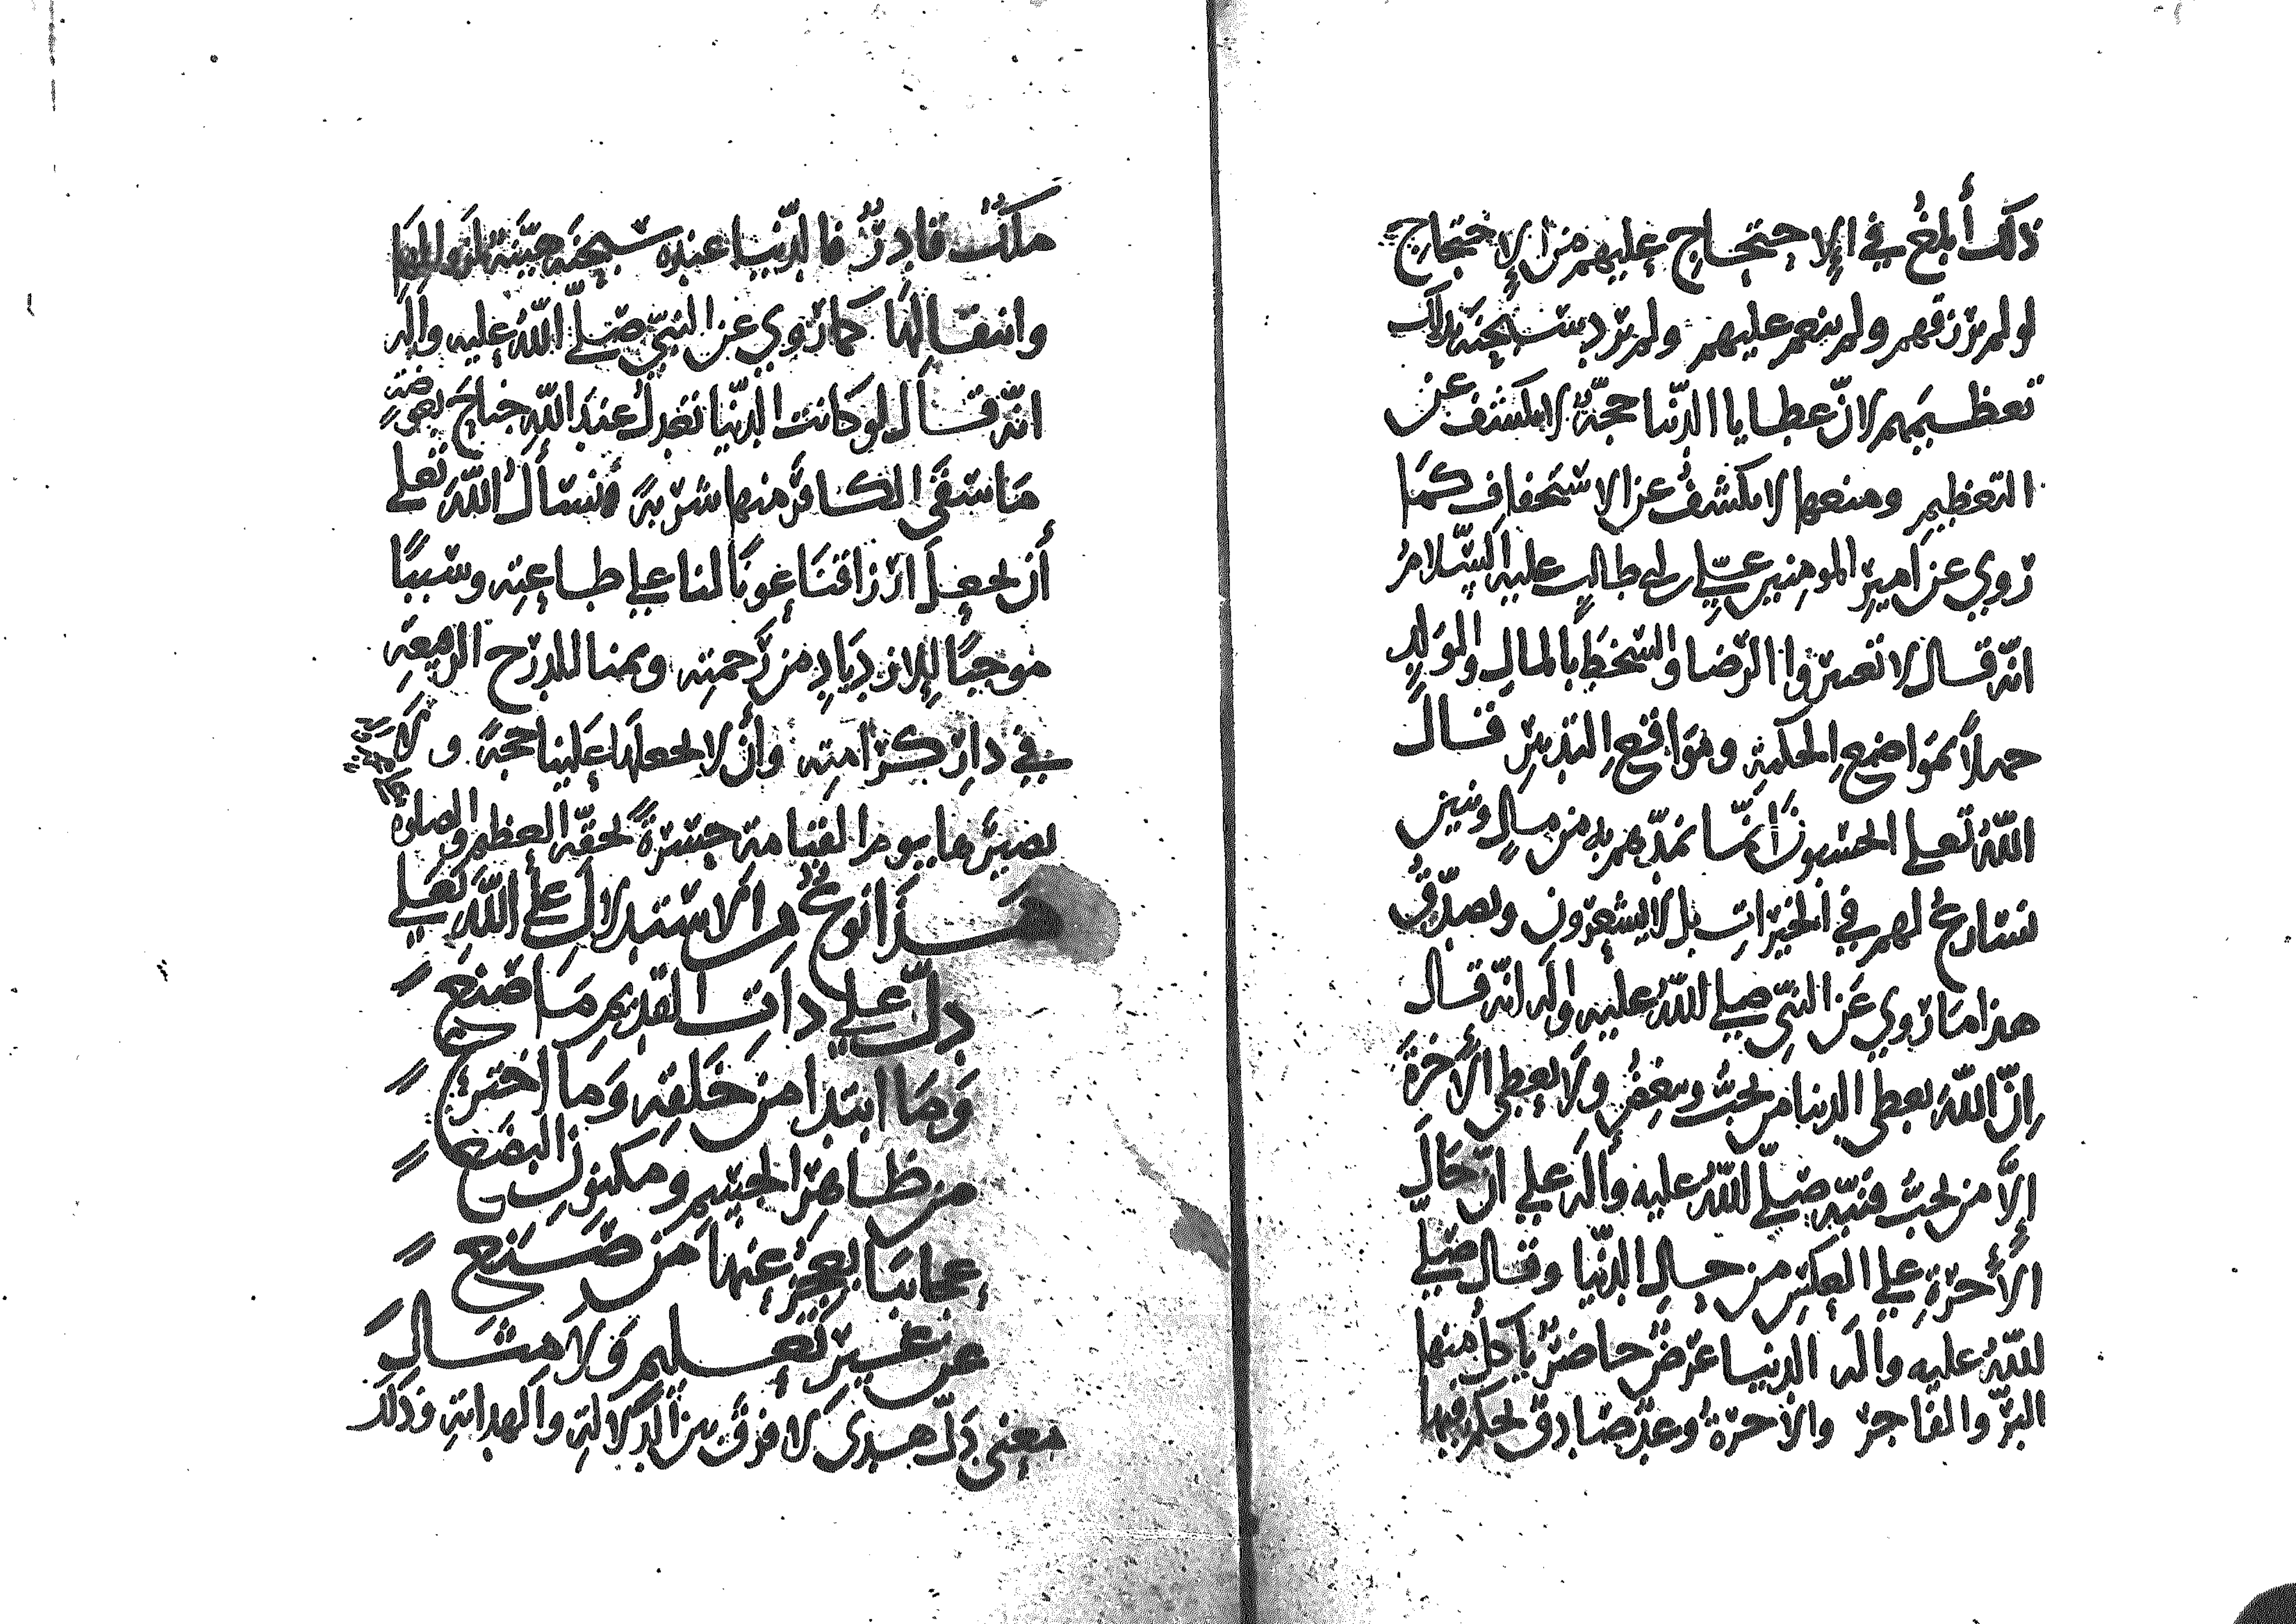 ذلك أبلغُ في الإحتجاج عليهم من الإحتجاج
لو لم يرزقهم ولم ينعم عليهم ولم يرد سبحنه بذلك
تعظيمهم لانّ عطايا الدنيا حجّةٌ لا يكشف عن
التعظيم ومنعها لا يكشفُ عن الاستخفاف كما
روي عن امير المومنين عليّ بن ابي طالب عليه السّلامُ
انّه قال لا تعتبروا الرّضا والسّخط بالمال والولد
جهلاً بمواضع الحكمة ومواقع التدبير قال
اللّهُ تعلى ايحسبون أنّما نمدّهم به من مالٍ وبنين
نسارعُ لهم في الخيراتِ بل لا يشعرون ويصدّقُ
هذا ما روي عن النّبي صلى اللّهُ عليه وآله انّه قال
إنّ اللّهَ يعطي الدنيا من يحبُّ ويبغضُ ولا يعطي الأخرةَ
إلاّ من يحبُّ فنبّه صلّى اللّهُ عليه وآله على انّ حالَ
الأخرةِ على العكس من حال الدّنيا وقال صلّى
اللّهُ عليه وآله الدنيا عرضٌ حاضرٌ يأكلُ منها
البرّ والفاجرُ والأخرةُ وعدٌ صادقٌ يحكم فيها
ملكٌ قادرٌ فالدّنيا عنده سبحنه هيّنة لزوالها
وانتقالها كما روي عن النبيّ صلّى اللّهُ عليه وآله
انّه قال لو كانت الدّنيا تعدلُ عند اللّهِ جناحَ بعوضةٍ
ما سقى الكافرَ منها شربةً فنسألُ اللّهَ تعلى
أن يجعل ارزاقنا عونًا لنا على طاعته وسببًا
موجبًا للازديادِ من رحمته وثمنا للدرج الرفيعة
في دار كرامته وأن لا يجعلها علينا حجةً ولا
يصيّرها يوم القيامة حسرةً بحقّه العظيم والصلوة
هذا نوعٌ من الاستدلال على اللّهِ تعلى
دلَّ على ذات القديم ما صنع
وما ابتدا من خلقه وما اخترع
من ظاهر الجسم ومكنون البضع
عجائبًا يعجز عنها من صنع
عن غير تعليم ولا مثالِ
معنى دلّ هدى لا فرق بين الدلالة والهداية وذلك